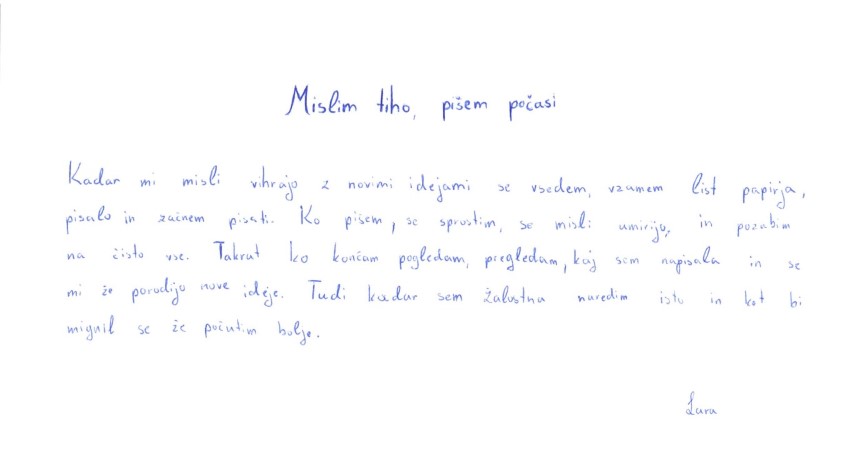 Mislim tiho, pišem počasi
Kadar mi misli vihrajo z novimi idejami se vsedem, vzamem list papirja,
pisalo in začnem pisati. Ko pišem, se sprostim, se misli umirijo, in pozabim
na čisto vse. Takrat ko končam pogledam, pregledam, kaj sem napisala in se
mi že porodijo nove ideje. Tudi kadar sem žalostna naredim isto in kot bi
mignil se že počutim bolje.
Lara